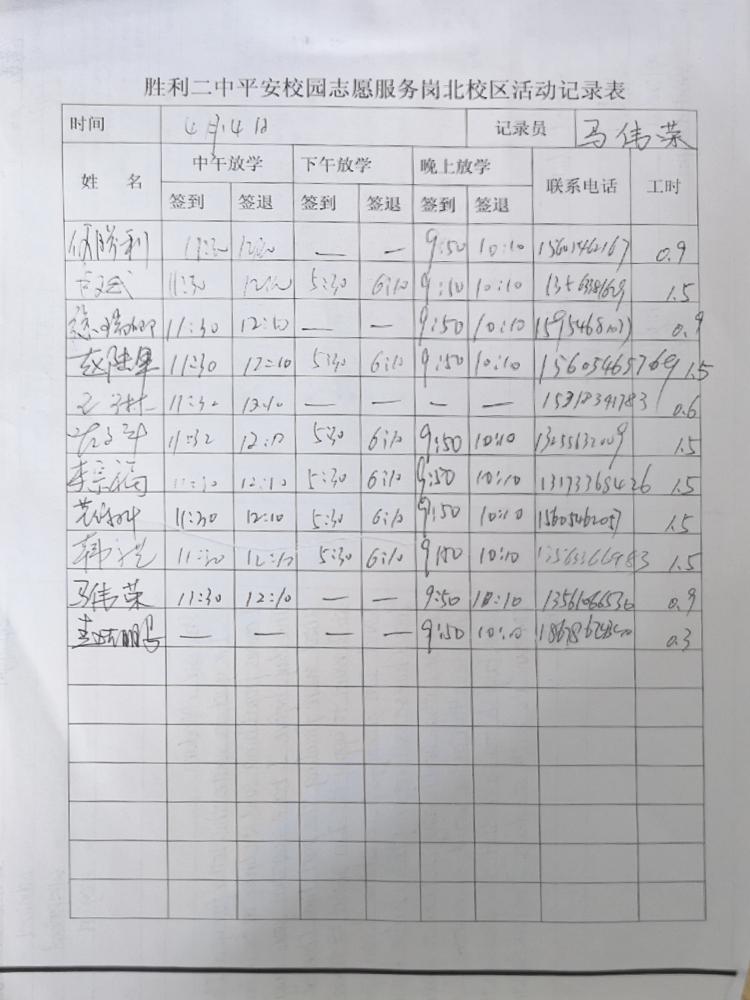 胜利二中平安校园志愿服务岗北校区活动记录表
时间 4月14日 记录员 马伟荣
姓 名 中午放学 下午放学 晚上放学 联系电话 工时
签到 签退 签到 签退 签到 签退
胜利 11:30 — — 9:50 10:10 15601462167 0.9
11:30 5:30 6:10 9:50 10:10 1.5
11:30 12:10 — — 9:50 10:10 0.9
赵陆军 11:30 12:10 5:30 6:10 9:50 10:10 15605465769 1.5
11:30 12:10 — — — — 15318341783 0.6
12:10 5:30 6:10 9:50 10:10 1.5
李宗福 11:30 12:10 5:30 6:10 9:50 10:10 13173365426 1.5
11:30 12:10 5:30 6:10 9:50 10:10 15605462057 1.5
韩 11:30 12:10 5:30 6:10 9:50 10:10 13563366983 1.5
马伟荣 11:30 12:10 — — 9:50 10:10 13561066530 0.9
— — — — 9:50 10:10 0.3